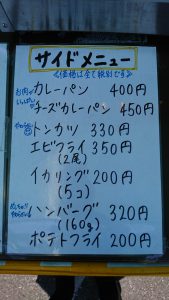 サイドメニュー
《価格は全て税別です》
カレーパン 400円
チーズカレーパン 450円
トンカツ 330円
エビフライ 350円
(2尾)
イカリング 200円
(5コ)
ハンバーグ 320円
(160g)
ポテトフライ 200円